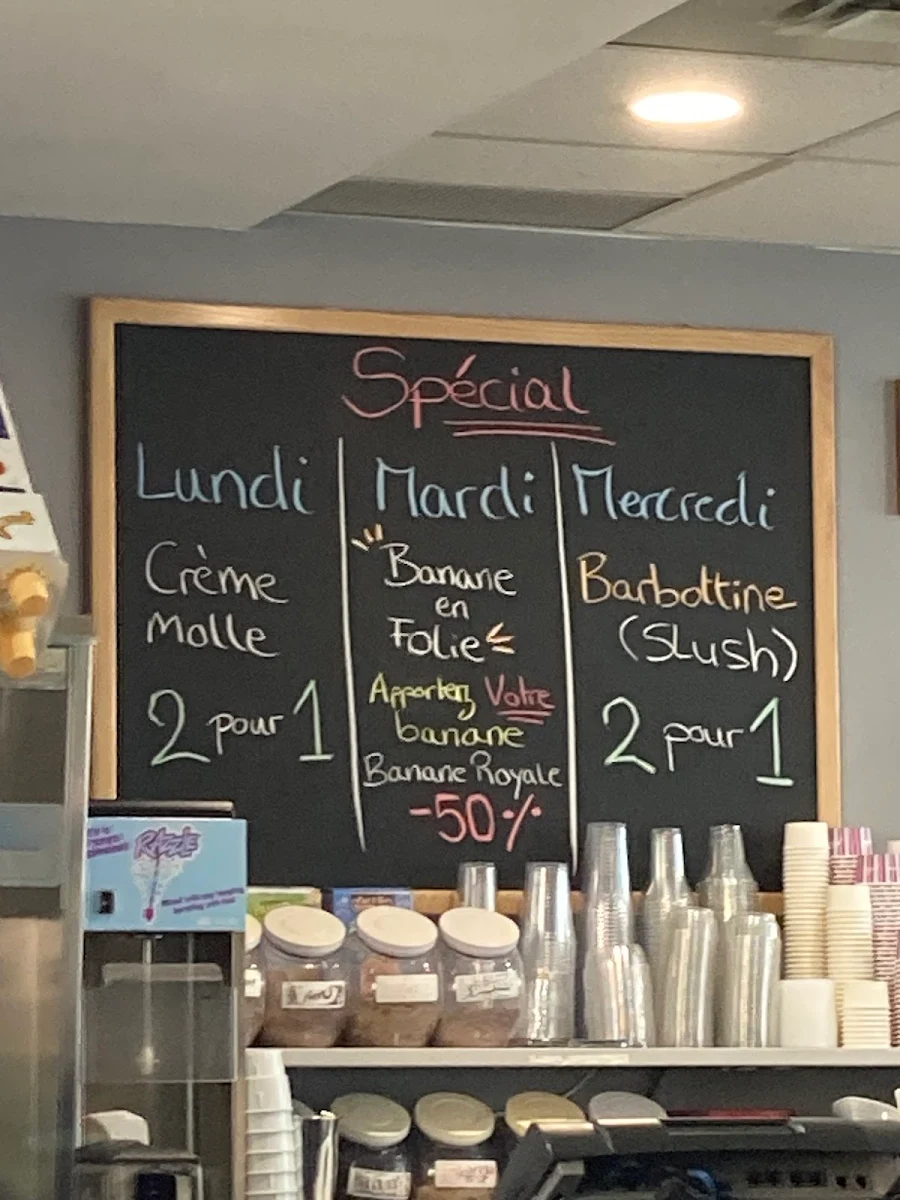 Spécial
Lundi
Crème
Molle
2 pour 1
Mardi
Banane
en
Folie
Apportez Votre
banane
Banane Royale
-50%
Mercredi
Barbottine
(Slush)
2 pour 1
RAZZLE